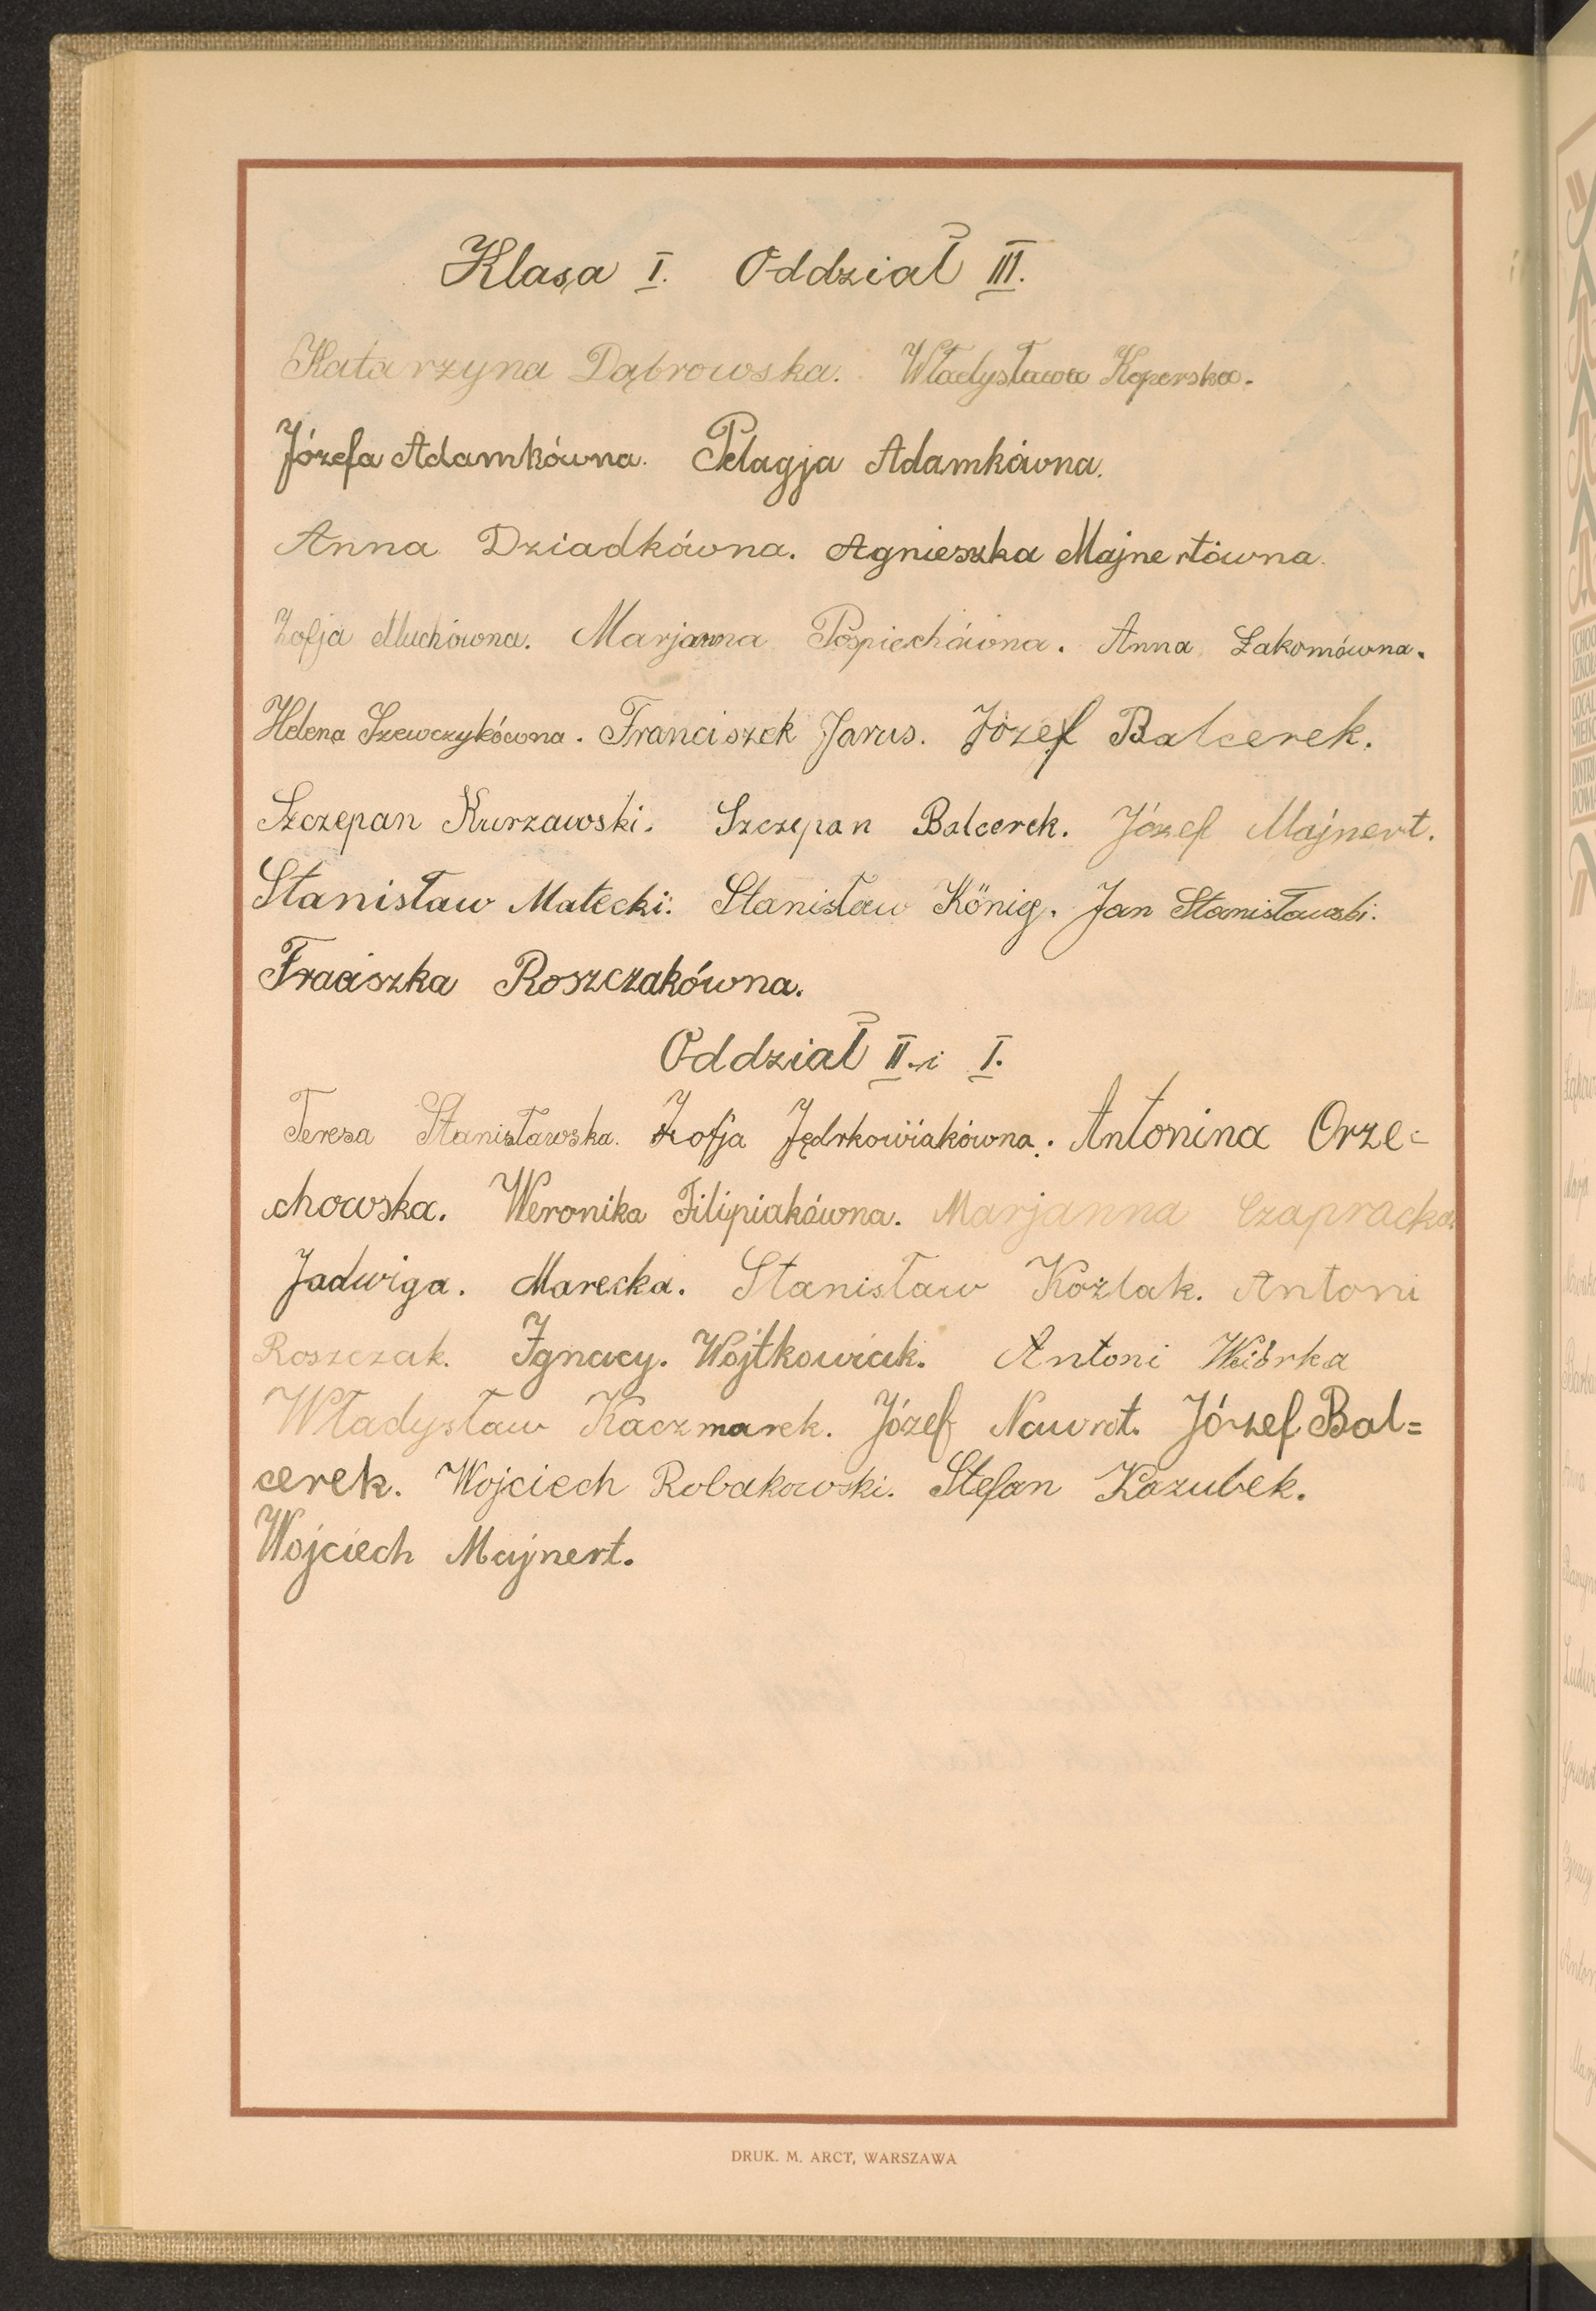 Klasa I. Oddział III.
Katarzyna Dąbrowska. Władysława Koperska.
Józefa Adamkówna. Pelagja Adamkówna.
Anna Dziadkówna. Agnieszka Majnertówna.
Zofja Muchówna. Marjanna Pospiechówna. Anna Łakomówna.
Helena Szewczykówna. Franciszek Jarus. Józef Balcerek.
Szczepan Kurzawski. Szczepan Balcerek. Józef Majnert.
Stanisław Małecki. Stanisław König. Jan Stanisławski.
Fraciszka Roszczakówna.
Oddział II. i I.
Teresa Stanisławska. Zofja Jędrkowiakówna. Antonina Orze=
chowska. Weronika Filipiakówna. Marjanna Czapracka.
Jadwiga. Marecka. Stanisław Koźlak. Antoni
Roszczak. Ignacy. Wojtkowiak. Antoni Wiórka
Władysław Kaczmarek. Józef Nawrot. Józef Bal=
cerek. Wojciech Robakowski. Stefan Kozubek.
Wojciech Majnert.
DRUK. M. ARCT, WARSZAWA